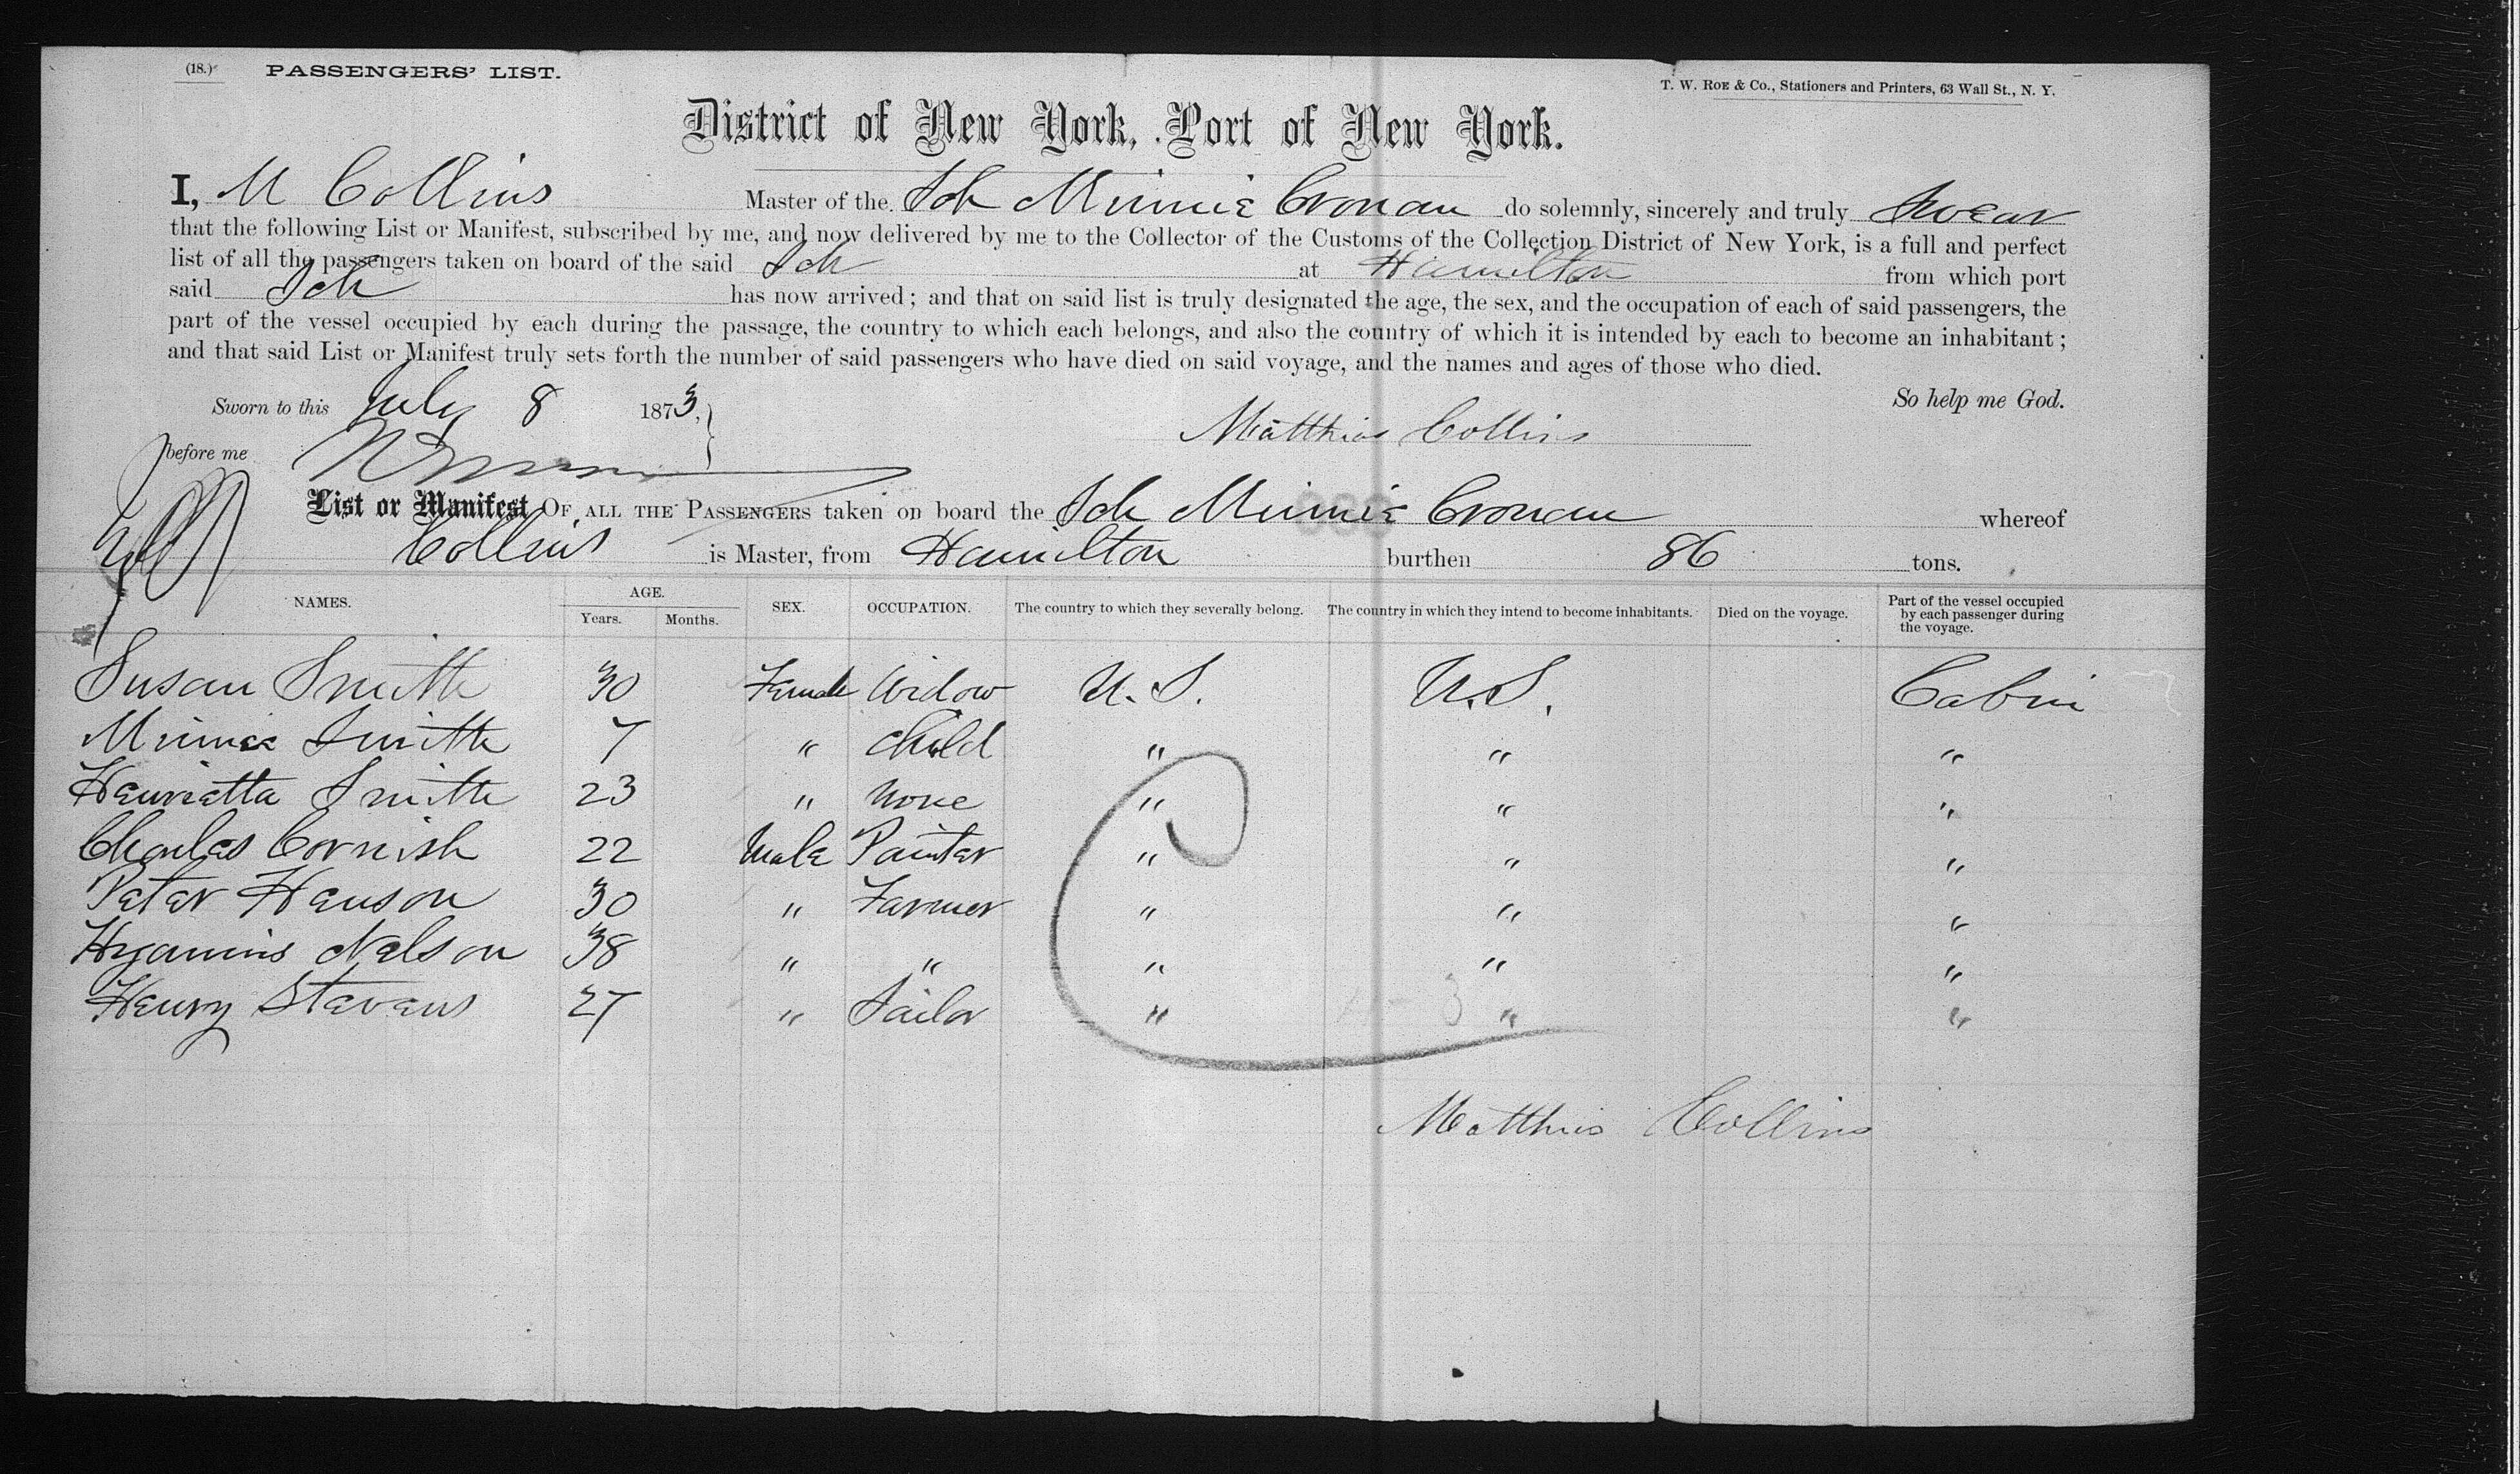 (18.) PASSENGERS' LIST.
T. W. ROE & Co., Stationers and Printers, 63 Wall St., N. Y.
District of New York, Port of New York.
I, M Collins Master of the Sch Minnie Cronan do solemnly, sincerely and truly Swear
that the following List or Manifest, subscribed by me, and now delivered by me to the Collector of the Customs of the Collection District of New York, is a full and perfect
list of all the passengers taken on board of the said Sch at Hamilton from which port
said Sch has now arrived; and that on said list is truly designated the age, the sex, and the occupation of each of said passengers, the
part of the vessel occupied by each during the passage, the country to which each belongs, and also the country of which it is intended by each to become an inhabitant;
and that said List or Manifest truly sets forth the number of said passengers who have died on said voyage, and the names and ages of those who died.
So help me God.
Sworn to this July 8 1873,
Matthias Collins
before me
List or Manifest OF ALL THE PASSENGERS taken on board the Sch Minnie Cronan whereof
Collins is Master, from Hamilton burthen 86 tons.
NAMES. AGE. Years. Months. SEX. OCCUPATION. The country to which they severally belong. The country in which they intend to become inhabitants. Died on the voyage. Part of the vessel occupied by each passenger during the voyage.
Susan Smith 30 Female Widow U.S. U.S. Cabin
Minnie Smith 7 " Child " " "
Henrietta Smith 23 " None " " "
Charles Cornish 22 Male Painter " " "
Peter Hanson 30 " Farmer " " "
Nelson 38 " " " " "
Henry Stevens 27 " Sailor " " "
Matthias Collins